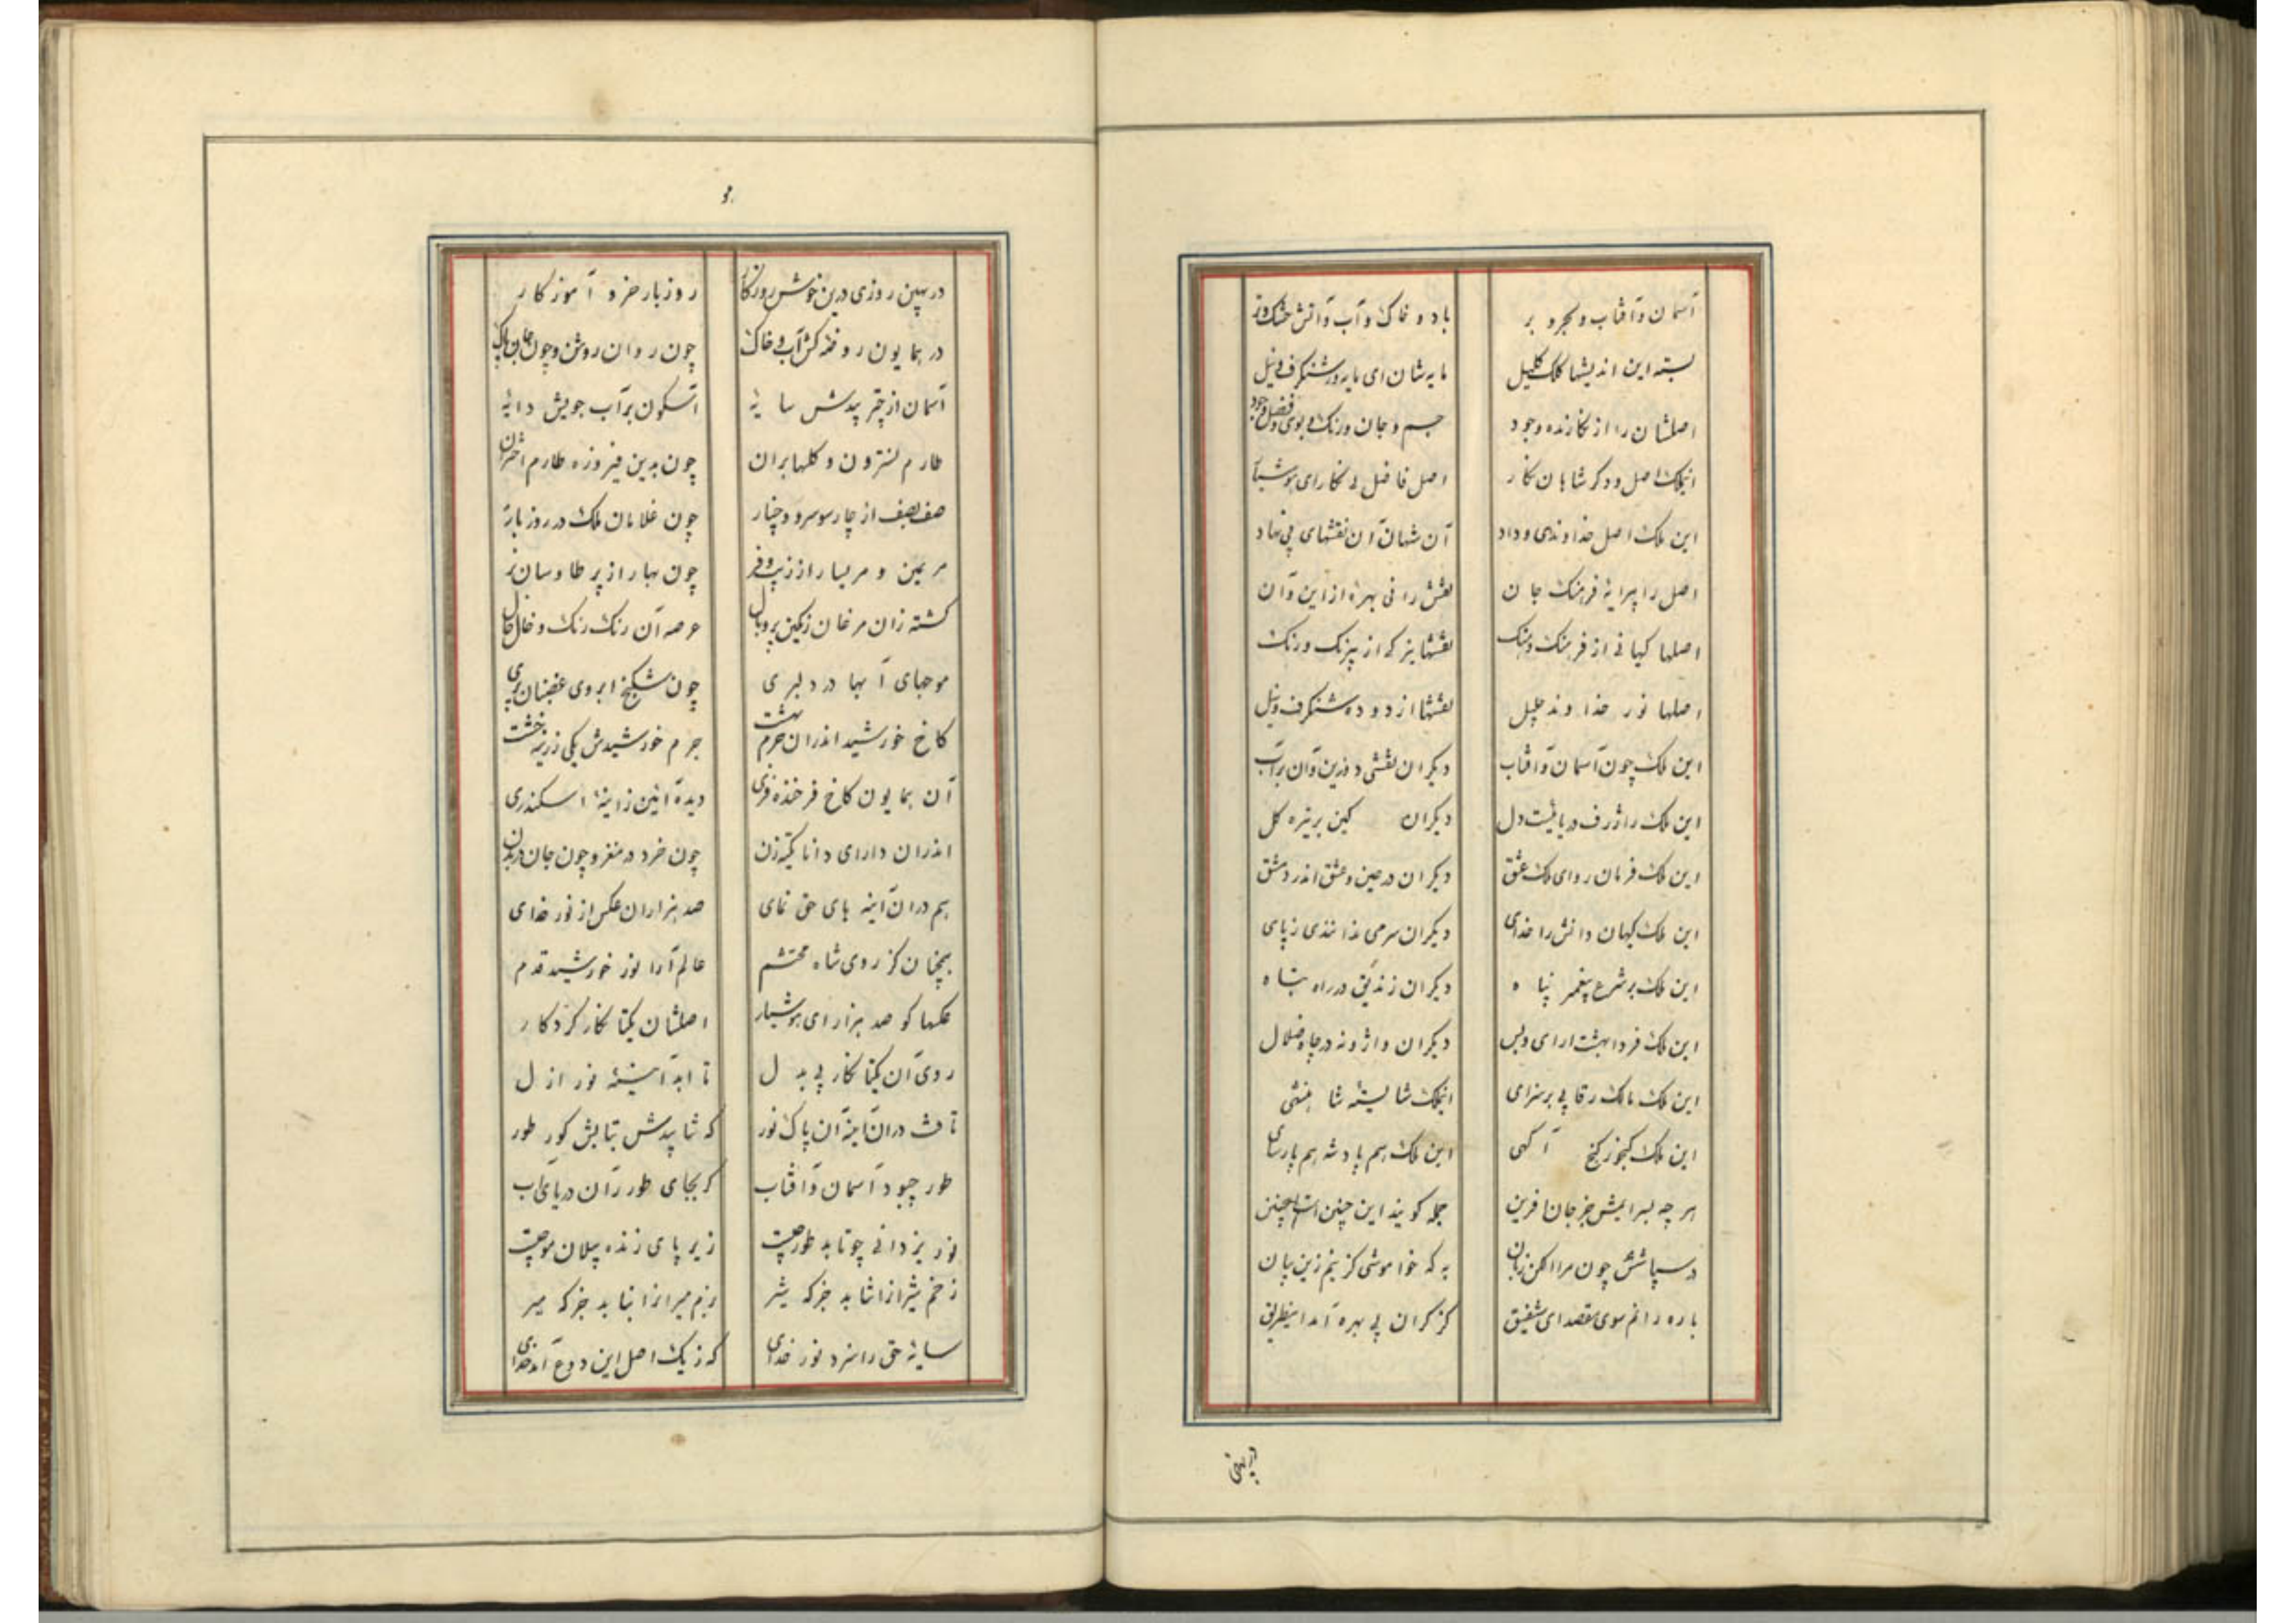 آسمان و آفتاب و بحر و بر باد و خاک و آب و آتش خشک و تر
بسته این اندیشها کلک کلیل مایه شان ای مایه ور شنکرف و نیل
اصلشان را از نکارنده وجود جسم و جان و رنک و بوی و فضل و جود
اینملک اصل و دکر شاهان نکار اصل فاضل نی نکار ای هوشیار
این ملک اصل خداوندی و داد آن شهان آن نقشهای بی نهاد
اصل را پیرایهٔ فرهنک جان نقش را نی بهره از این و آن
اصلها کیانی از فرهنک و هنک نقشها یزکی از نیرنک و رنک
اصلها نور خداوند جلیل نقشها از دوده شنکرف و نیل
این ملک چون آسمان و آفتاب دیکران نقشی دو زین و آن بر آب
این ملک را ژرف دریائیست دل دیکران کین بر تیره کل
این ملک فرمان روای ملک عشق دیکران در چین و عشق اندر دمشق
این ملک کیهان دانش را خدای دیکران سر می ندانندی ز پای
این ملک بر شرع پیغمبر پناه دیکران زندیق در راه تباه
این ملک فردا بهشت ارای و بس دیکران واژونه در چاه ضلال
این ملک مالک رقابی بر سزای اینملک شایستهٔ شاهنشی
این ملک کنجور کنج آکهی این ملک هم پادشه هم پارسای
هر چه بسرایمش جز جان افرین جمله کویند این چنین است اینچنین
در سپاسش چون مرا الکن زبان به که خاموشی کزینم زین بیان
باره رانم سوی مقصد ای شفیق کز کران بی بهره آمد اینطریق
در بهین
در بهین روزی درین خوش روزکار روز بار خرد آموزکار
در همایون روضه کش آب و خاک چون روان روشن و چون جان پاک
آسمان از چتر بیدش سایهٔ آبسکون بر آب جویش دایهٔ
طارم نسترون و کلها بران چون بدین فیروزه طارم اختران
صف بصف از چارسو سرو و چنار چون غلامان ملک در روز بار
بر یمین و بر یسار از زیب و فر چون بهار از پر طاوسان نر
کشته زان مرغان رنکین پر و بال عرصه آن رنک رنک و خال خال
موجهای آبها در دلبری چون شکنج ابروی غضبان پری
کاخ خورشید اندران خرم بهشت جرم خورشیدش یکی زرینه خشت
آن همایون کاخ فرخنده فری دیده آئین ز اینهٔ اسکندری
اندران دارای دانا تکیه زن چون خرد در مغز و چون جان در بدن
هم در ان آینه های حق نمای صد هزاران عکس از نور خدای
همچنان کز روی شاه محتشم عالم آرا نور خورشید قدم
عکسها کو صد هزار ای هوشیار اصلشان یکتا نکار کردکار
روی آن یکتا نکار بی بدل تا ابد آئینهٔ نور ازل
تافت در ان آینه آن پاک نور که نتابیدش بتابش کور طور
طور چبود آسمان و آفتاب کر بجای طور زان دریای آب
نور یزدانی چو تابد طور چیست زیر پای زنده پیلان مور چیست
زخم شیرانرا نتابد جز که شیر بزم میرانرا نیابد جز که میر
سایهٔ حق را سزد نور خدای که ز یک اصل این دو فرع آمد جدای